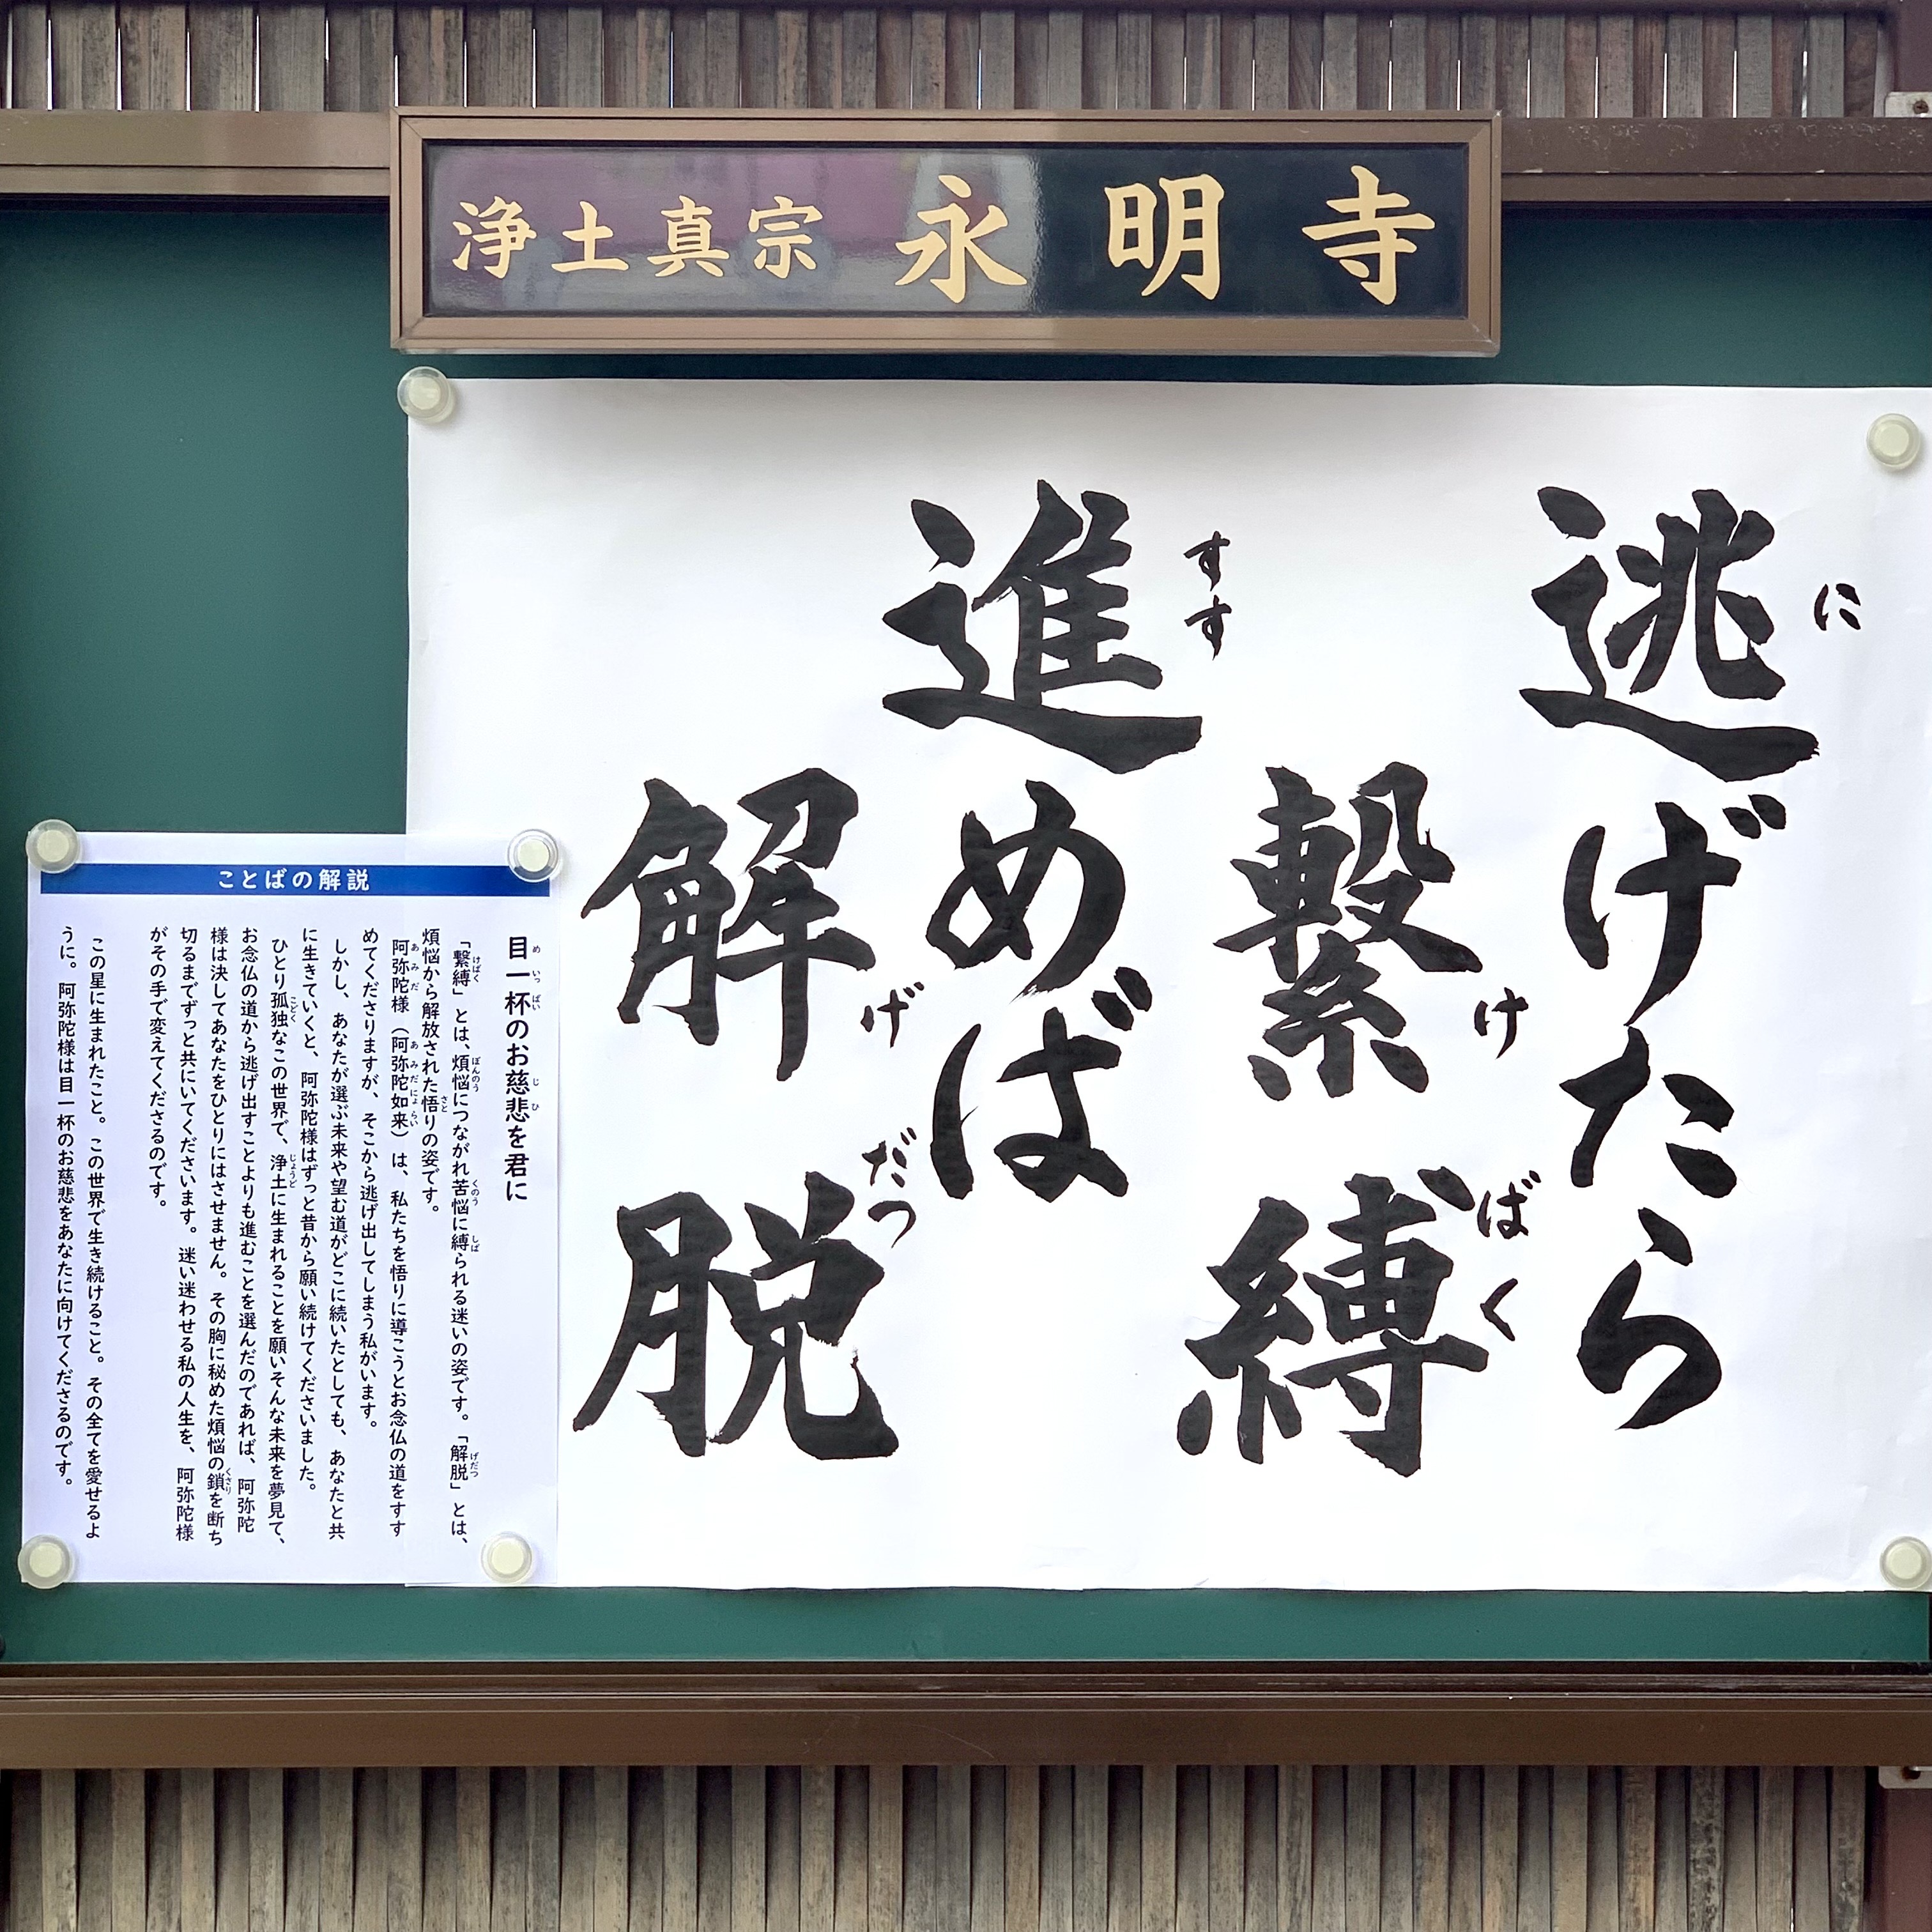 浄土真宗 永明寺
逃げたら
に
繫縛
けばく
進めば
すす
解脱
げだつ
ことばの解説
目一杯のお慈悲を君に
めいっぱい じひ
「繋縛」とは、煩悩につながれ苦悩に縛られる迷いの姿です。「解脱」とは、
けばく ぼんのう くのう しば げだつ
煩悩から解放された悟りの姿です。
さと
阿弥陀様（阿弥陀如来）は、私たちを悟りに導こうとお念仏の道をすす
あみだ あみだにょらい
めてくださりますが、そこから逃げ出してしまう私がいます。
しかし、あなたが選ぶ未来や望む道がどこに続いたとしても、あなたと共
に生きていくと、阿弥陀様はずっと昔から願い続けてくださいました。
ひとり孤独なこの世界で、浄土に生まれることを願いそんな未来を夢見て、
こどく じょうど
お念仏の道から逃げ出すことよりも進むことを選んだのであれば、阿弥陀
様は決してあなたをひとりにはさせません。その胸に秘めた煩悩の鎖を断ち
くさり
切るまでずっと共にいてくださいます。迷い迷わせる私の人生を、阿弥陀様
がその手で変えてくださるのです。
この星に生まれたこと。この世界で生き続けること。その全てを愛せるよ
うに。阿弥陀様は目一杯のお慈悲をあなたに向けてくださるのです。